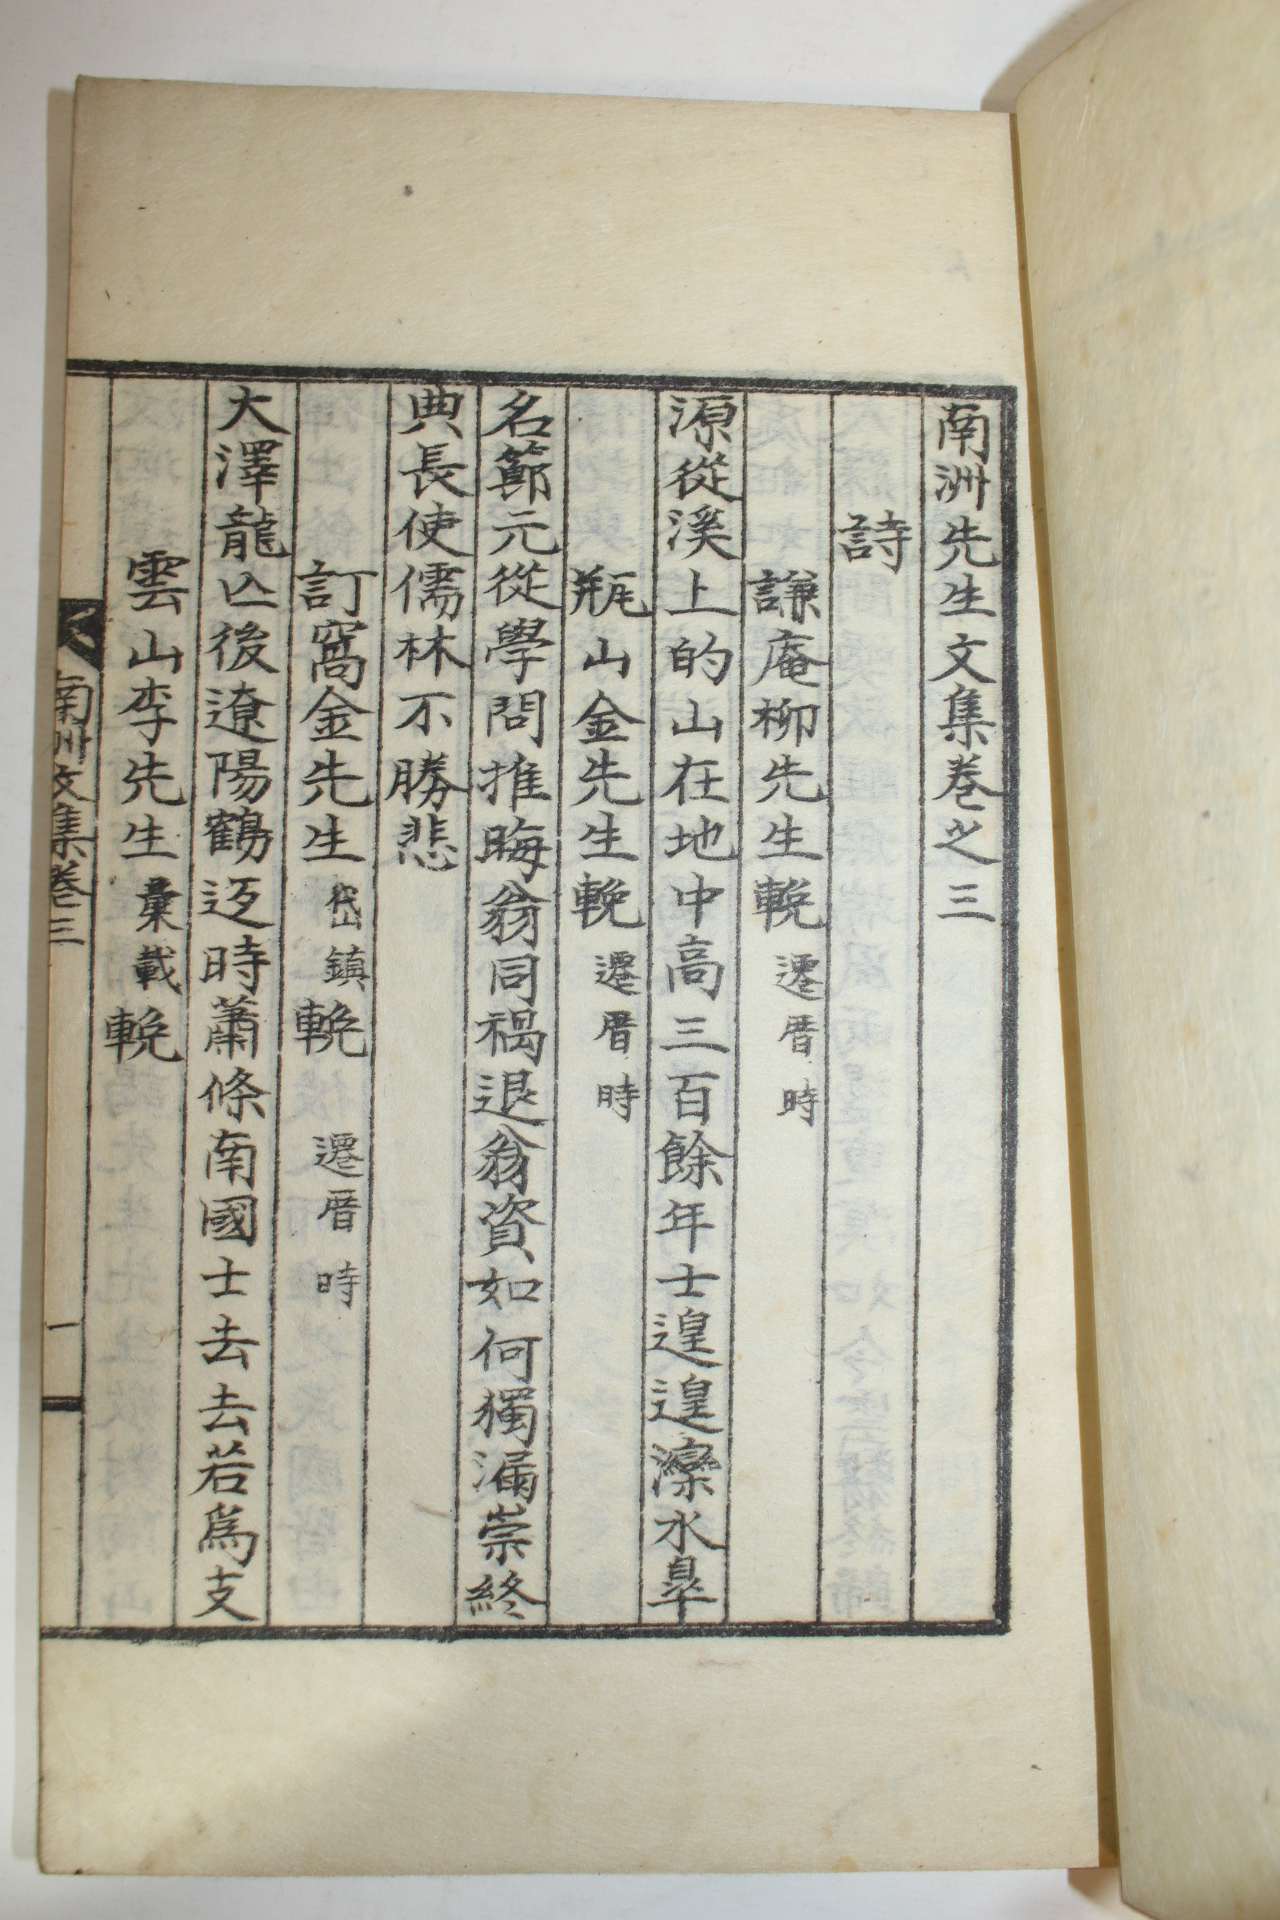 南洲先生文集卷之三
詩
謙庵柳先生輓 遷厝時
源從溪上的山在地中高三百餘年士遑遑灤水皐
甁山金先生輓 遷厝時
名節元從學問推晦翁同禍退翁資如何獨漏崇終
典長使儒林不勝悲
訂窩金先生 岱鎭 輓 遷厝時
大澤龍亡後遼陽鶴返時蕭條南國士去去若爲支
雲山李先生 彙載 輓
南洲文集卷三 一